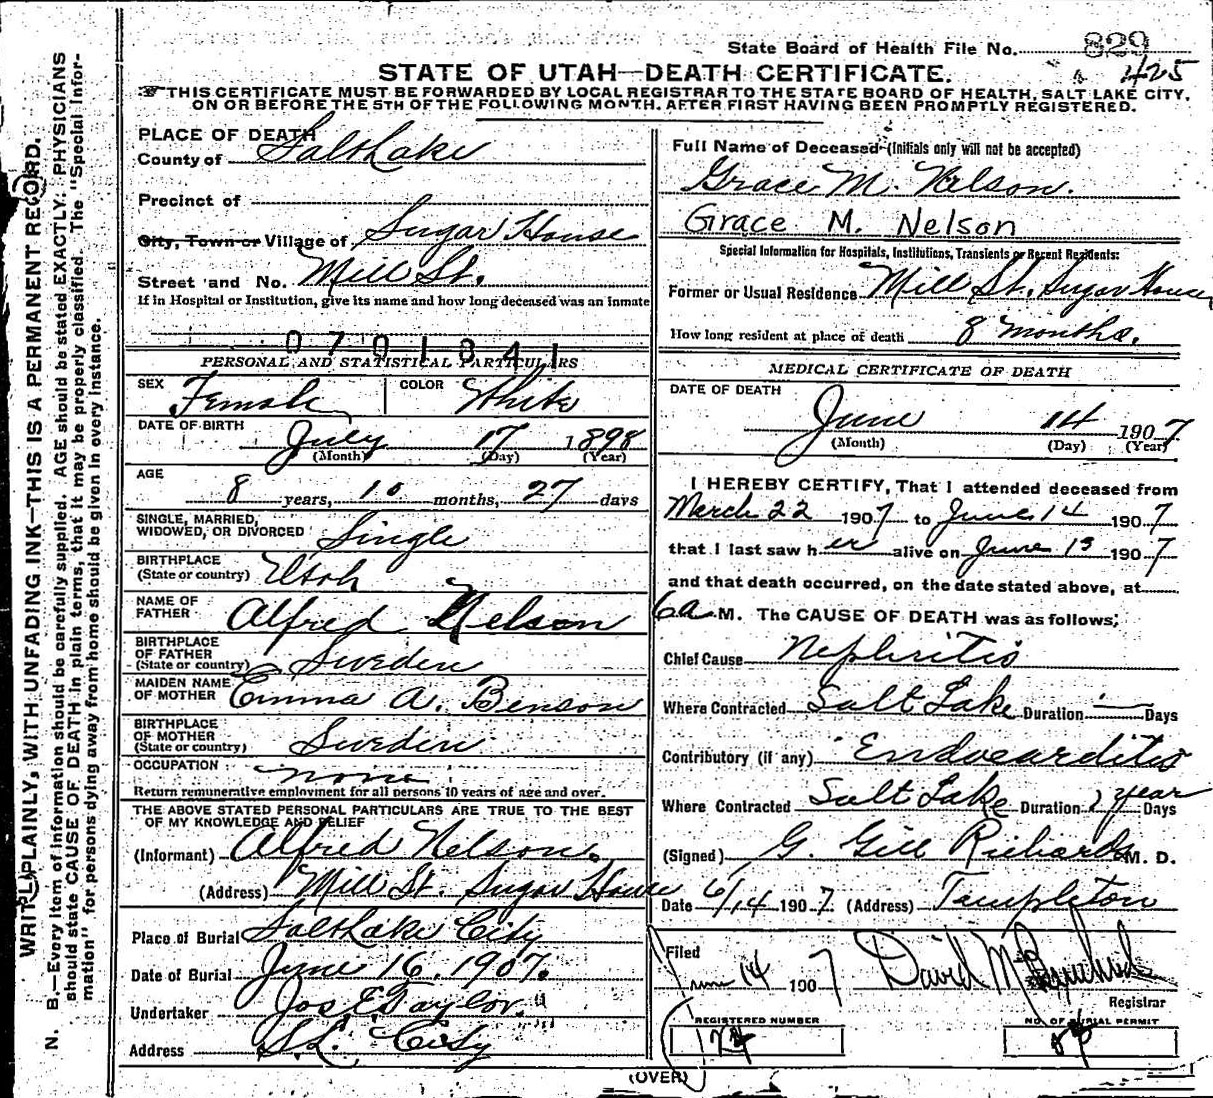 State Board of Health File No. 829
425
STATE OF UTAH—DEATH CERTIFICATE.
THIS CERTIFICATE MUST BE FORWARDED BY LOCAL REGISTRAR TO THE STATE BOARD OF HEALTH, SALT LAKE CITY,
ON OR BEFORE THE 5TH OF THE FOLLOWING MONTH, AFTER FIRST HAVING BEEN PROMPTLY REGISTERED.
WRITE PLAINLY, WITH UNFADING INK—THIS IS A PERMANENT RECORD.
N. B.—Every item of information should be carefully supplied. AGE should be stated EXACTLY. PHYSICIANS
should state CAUSE OF DEATH in plain terms, that it may be properly classified. The "Special Infor-
mation" for persons dying away from home should be given in every instance.
PLACE OF DEATH
County of Salt Lake
Precinct of
City, Town or Village of Sugar House
Street and No. Mill St.
If in Hospital or Institution, give its name and how long deceased was an inmate
0701841
PERSONAL AND STATISTICAL PARTICULARS
SEX Female COLOR White
DATE OF BIRTH July 17 1898
(Month) (Day) (Year)
AGE
8 years, 10 months, 27 days
SINGLE, MARRIED,
WIDOWED, OR DIVORCED Single
BIRTHPLACE
(State or country) Utah
NAME OF
FATHER Alfred Nelson
BIRTHPLACE
OF FATHER
(State or country) Sweden
MAIDEN NAME
OF MOTHER Emma A. Benson
BIRTHPLACE
OF MOTHER
(State or country) Sweden
OCCUPATION none
Return remunerative employment for all persons 10 years of age and over.
THE ABOVE STATED PERSONAL PARTICULARS ARE TRUE TO THE BEST
OF MY KNOWLEDGE AND BELIEF
(Informant) Alfred Nelson.
(Address) Mill St. Sugar House
Place of Burial Salt Lake City
Date of Burial June 16, 1907.
Undertaker Jos. E. Taylor.
Address S. L. City
Full Name of Deceased (Initials only will not be accepted)
Grace M. Nelson.
Grace M. Nelson
Special Information for Hospitals, Institutions, Transients or Recent Residents:
Former or Usual Residence Mill St. Sugar House
How long resident at place of death 8 months.
MEDICAL CERTIFICATE OF DEATH
DATE OF DEATH
June 14 1907
(Month) (Day) (Year)
I HEREBY CERTIFY, That I attended deceased from
March 22 1907 to June 14 1907
that I last saw her alive on June 13 1907
and that death occurred, on the date stated above, at
6 a M. The CAUSE OF DEATH was as follows;
Chief Cause Nephritis
Where Contracted Salt Lake Duration — Days
Contributory (if any) Endocarditis
Where Contracted Salt Lake Duration year Days
(Signed) G. Gill Richards M. D.
Date 6/14 1907. (Address) Templeton
Filed
June 14 1907 David M
Registrar
REGISTERED NUMBER NO. OF BURIAL PERMIT
(OVER)